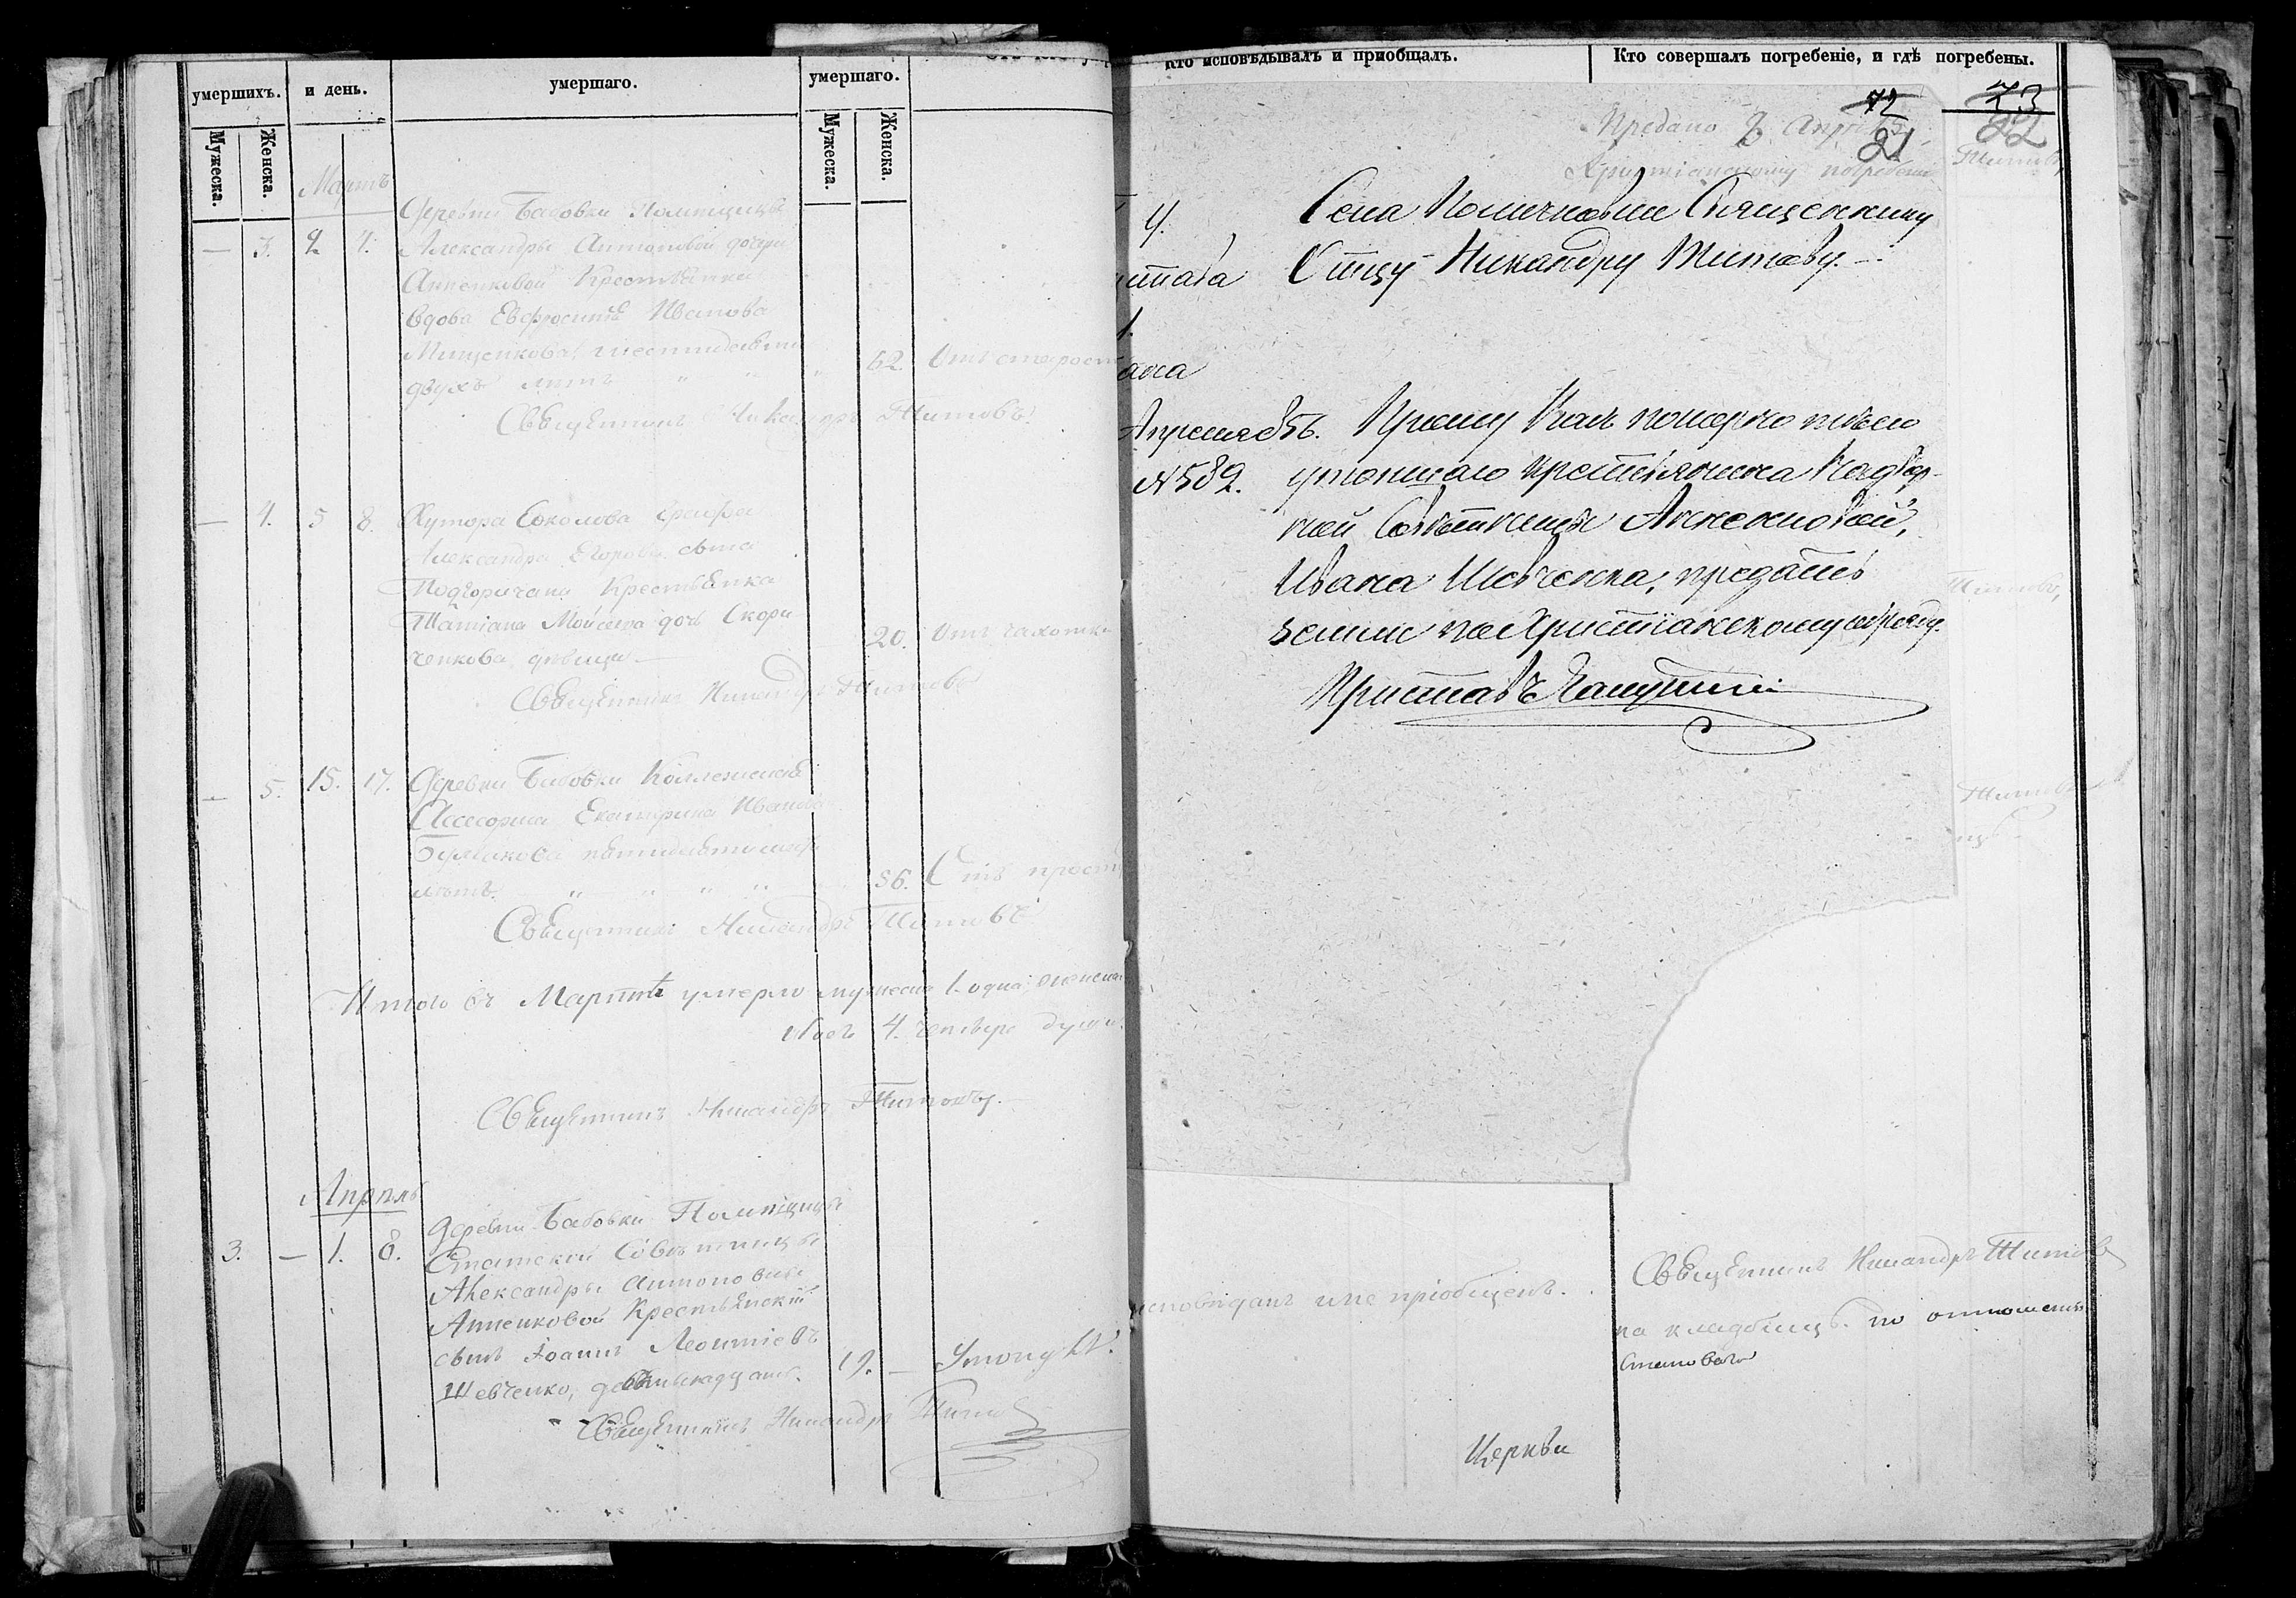 умершихъ.
и день.
умершаго.
умершаго.
Мужеска.
Женска.
Мужеска.
Женска.
Мартъ
Деревни Бабовки Помѣщицы
— 3. 2 4. Александры Антоновой дочери
Анненковой Крестьянка
вдова Евфросинія Иванова
Мищенкова, шестидесяти
двухъ лѣтъ " " " 62. Отъ старост
Священникъ Никандръ Титовъ.
— 4. 5 8. Хутора Соколова Графа
Александра Егорова сына
Подгоричани Крестьянка
Татіана Мойсеева дочь Скори
ченкова, дѣвица — 20. Отъ чахотки
Священникъ Никандръ Титовъ
— 5. 15. 17. Деревни Бабовки Коллежская
Ассесорша Екатерина Иванова
Булгакова пятидесяти шести
лѣтъ. " " " " 56. Отъ прост
Священникъ Никандръ Титовъ
Итого въ Мартѣ умерло мужеска 1. одна, женска
Обоего 4. четыре души.
Священникъ Никандръ Титовъ.
Апрѣль
Деревни Бабовки Помѣщицы
3. — 1. 8. Статской Совѣтницы
Александры Антоновны
Анненковой Крестьянскій
сынъ Іоаннъ Леонтіевъ
Шевченко, девятьнадцать. 19. — Утонулъ.
Священникъ Никандръ Титовъ
Кто исповѣдывалъ и пріобщалъ.
Кто совершалъ погребеніе, и гдѣ погребены.
72
73
21
22
Предано 8 Апрѣля
Христіанскому погребенію
Титовъ,
Села Священнику
Отцу Никандру Титову.
Апреля 8
№ 582.
Прошу Васъ тело
утопшаго крестьянина Надвор-
ной Советницы Анненковой,
Ивана Шевченка, предать
земли по Христіанскому обряду.
Приставъ
Титовъ,
Титовъ
исповѣданъ и не пріобщенъ.
Священникъ Никандръ Титовъ
на кладбищѣ. по отношенію
Становаго
Церкви